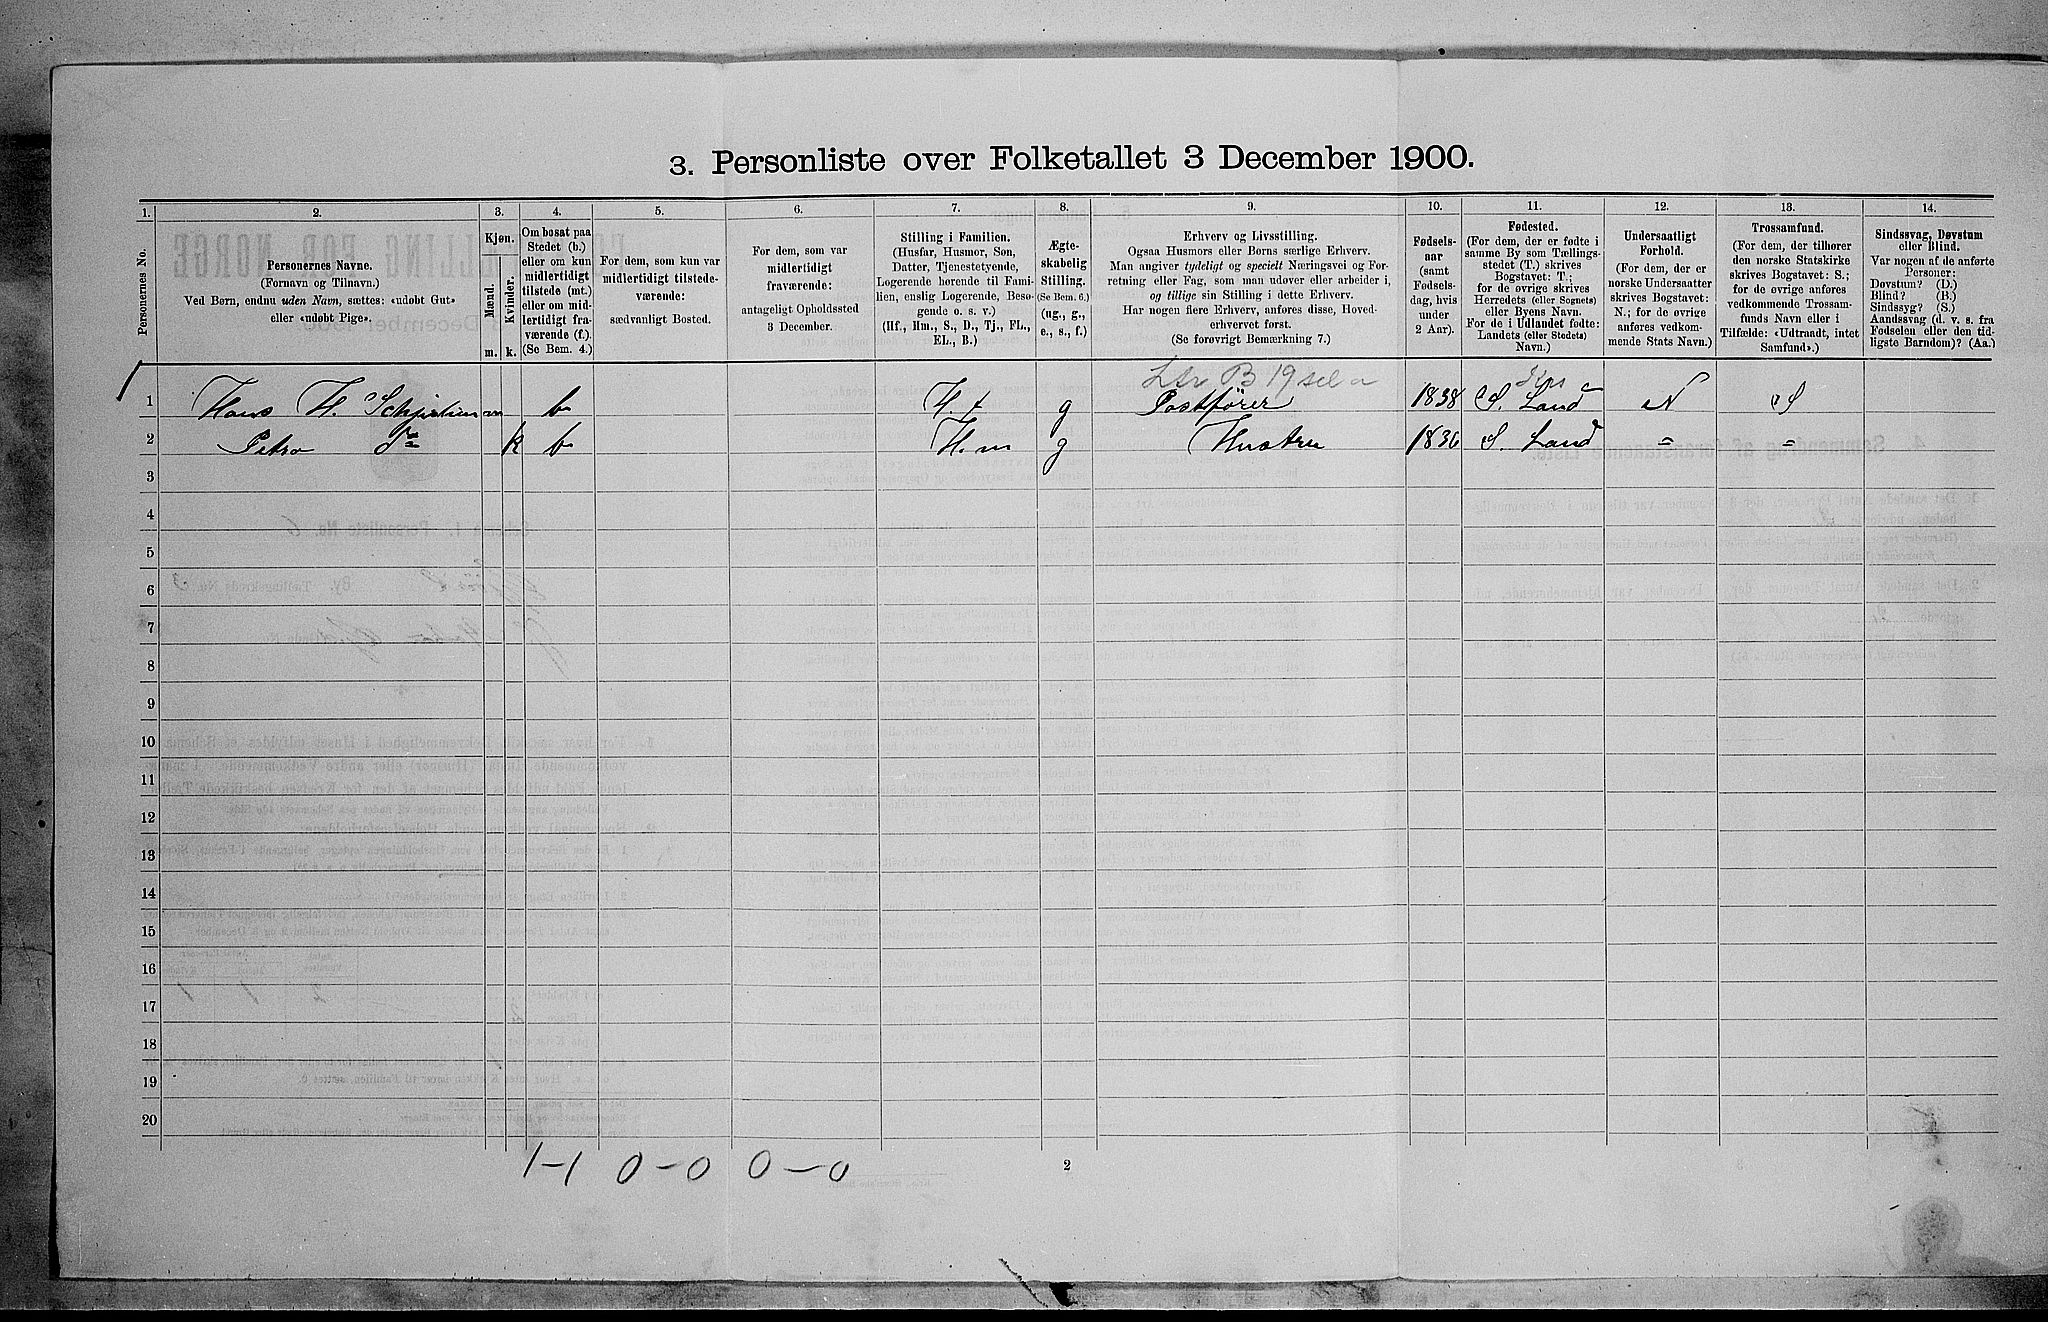 3. Personliste over Folketallet 3 December 1900.
1. 2. 3. 4. 5. 6. 7. 8. 9. 10. 11. 12. 13. 14.
Personernes No.
Personernes Navne.
(Fornavn og Tilnavn.)
Ved Børn, endnu uden Navn, sættes: «udøbt Gut»
eller «udøbt Pige».
Kjøn.
Mænd.
Kvinder.
m. k.
Om bosat paa
Stedet (b.)
eller om kun
midlertidigt
tilstede (mt.)
eller om mid-
lertidigt fra-
værende (f.)
(Se Bem. 4.)
For dem, som kun var
midlertidigt tilstede-
værende:
sædvanligt Bosted.
For dem, som var
midlertidigt
fraværende:
antageligt Opholdssted
3 December.
Stilling i Familien.
(Husfar, Husmor, Søn,
Datter, Tjenestetyende,
Logerende hørende til Fami-
lien, enslig Logerende, Besø-
gende o. s. v.)
(Hf., Hm., S., D., Tj., FL.,
EL., B.)
Ægte-
skabelig
Stilling.
(Se Bem. 6.)
(ug., g.,
e., s., f.)
Erhverv og Livsstilling.
Ogsaa Husmors eller Børns særlige Erhverv.
Man angiver tydeligt og specielt Næringsvei og For-
retning eller Fag, som man udøver eller arbeider i,
og tillige sin Stilling i dette Erhverv.
Har nogen flere Erhverv, anføres disse, Hoved-
erhvervet først.
(Se forøvrigt Bemærkning 7.)
Fødsels-
aar
(samt
Fødsels-
dag, hvis
under
2 Aar).
Fødested.
(For dem, der er fødte i
samme By som Tællings-
stedet (T.) skrives
Bogstavet: T.;
for de øvrige skrives
Herredets (eller Sognets)
eller Byens Navn.
For de i Udlandet fødte:
Landets (eller Stedets)
Navn.)
Undersaatligt
Forhold.
(For dem, der er
norske Undersaatter
skrives Bogstavet:
N.; for de øvrige
anføres vedkom-
mende Stats Navn.)
Trossamfund.
(For dem, der tilhører
den norske Statskirke
skrives Bogstavet: S.;
for de øvrige anføres
vedkommende Trossam-
funds Navn eller i
Tilfælde: «Udtraadt, intet
Samfund».)
Sindssvag, Døvstum
eller Blind.
Var nogen af de anførte
Personer:
Døvstum? (D.)
Blind? (B.)
Sindssyg? (S.)
Aandssvag (d. v. s. fra
Fødselen eller den tid-
ligste Barndom)? (Aa.)
1 Hans H. m b H.f g Postfører 1838 S. Land N S
2 Petra do k b H.m g Hustru 1836 S. Land = =
3
4
5
6
7
8
9
10
11
12
13
14
15
16
17
18
19
20
1-1 0-0 0-0
2